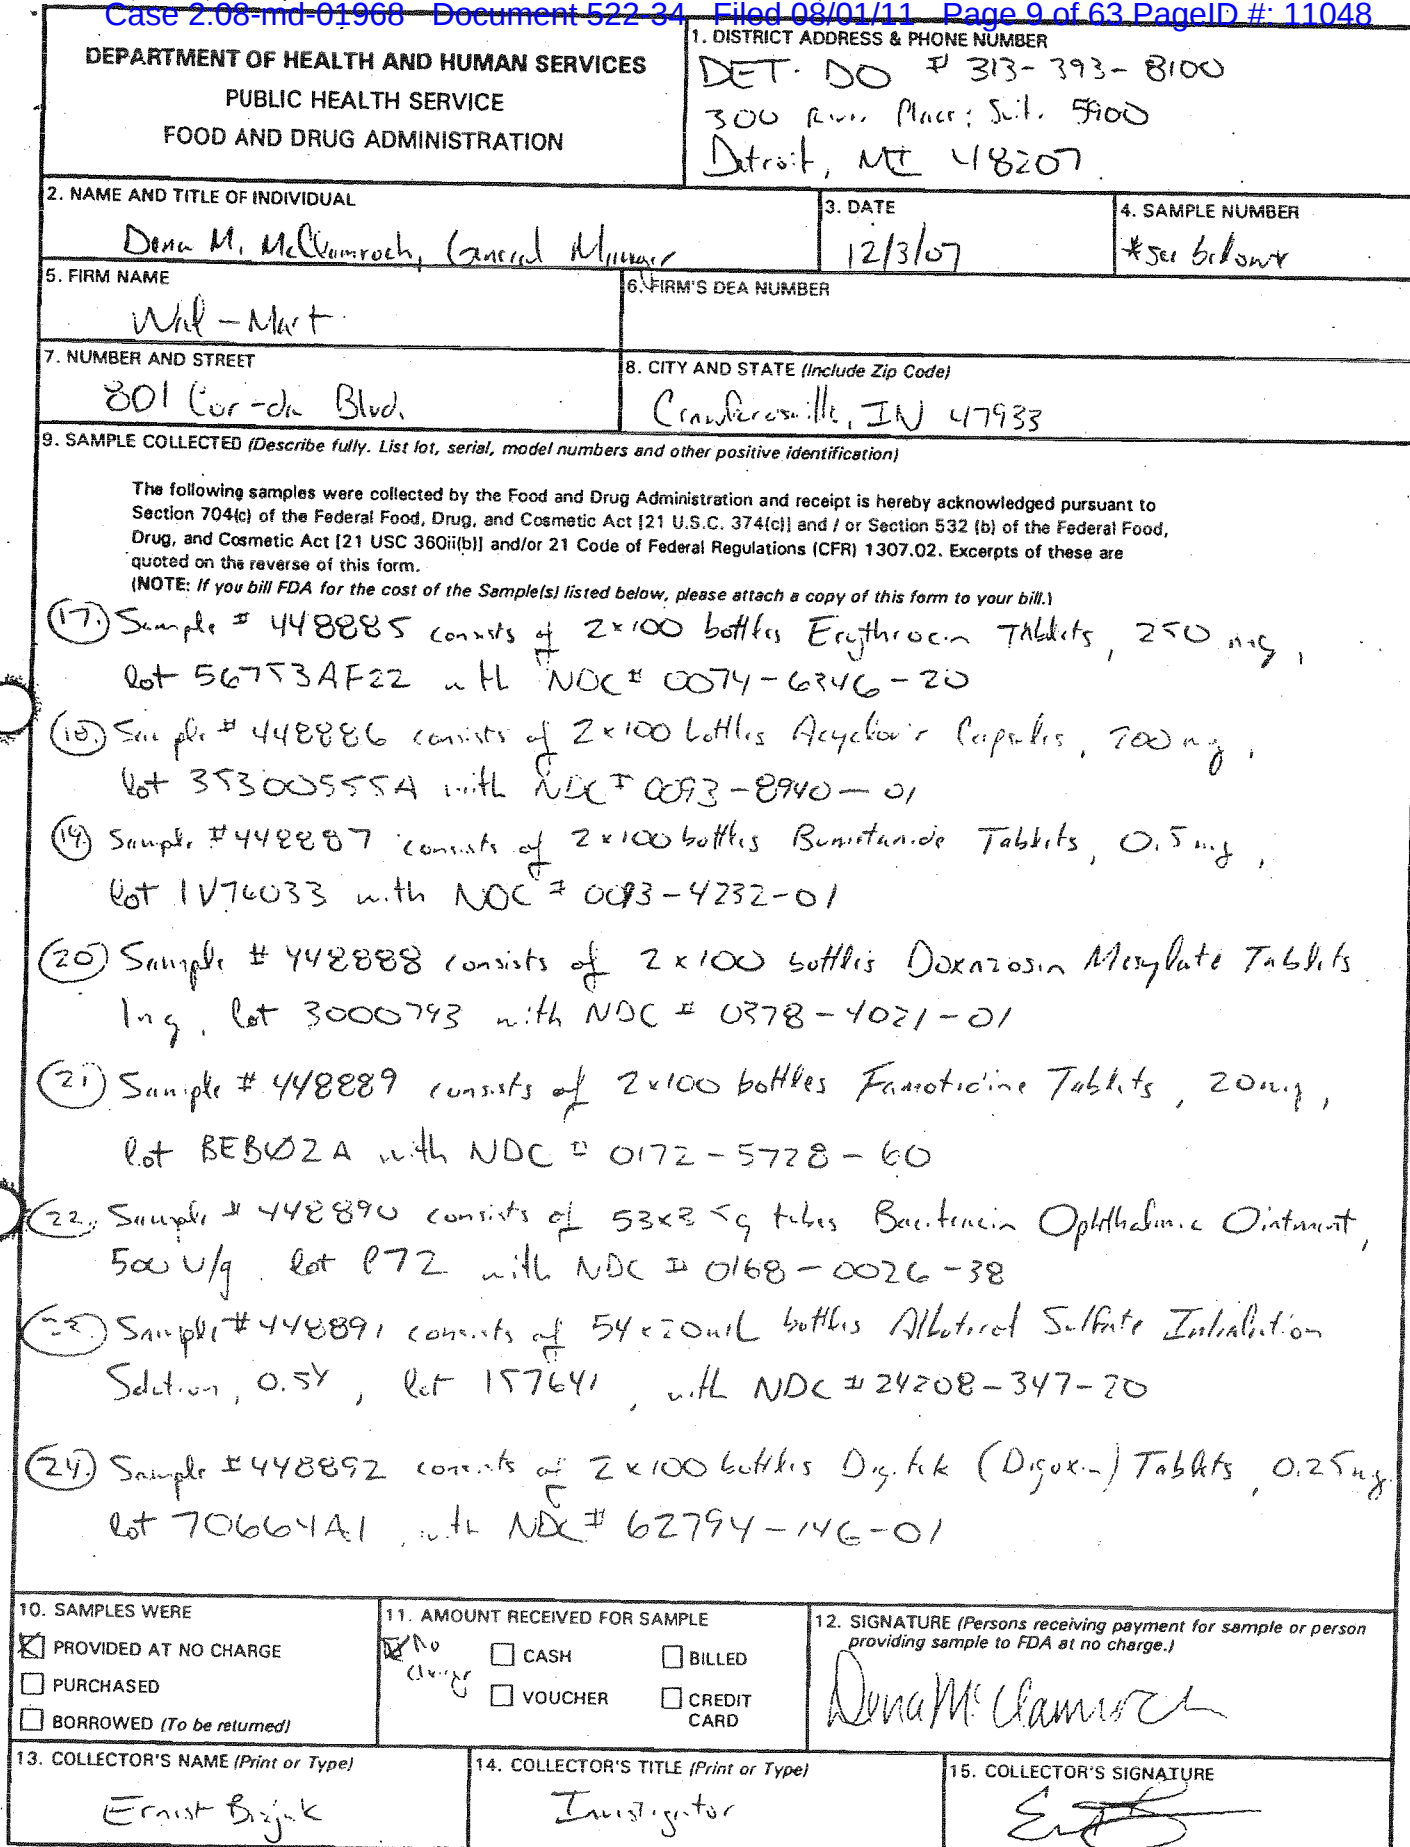 Case 2:08-md-01968 Document 522-34 Filed 08/01/11 Page 9 of 63 PageID #: 11048
DEPARTMENT OF HEALTH AND HUMAN SERVICES
PUBLIC HEALTH SERVICE
FOOD AND DRUG ADMINISTRATION
1. DISTRICT ADDRESS & PHONE NUMBER
DET. DO # 313-393-8100
300 River Place; Suite 5900
Detroit, MI 48207
2. NAME AND TITLE OF INDIVIDUAL
Dena M. McClamroch, General Manager
3. DATE
12/3/07
4. SAMPLE NUMBER
*see below*
5. FIRM NAME
Wal-Mart
6. FIRM'S DEA NUMBER
7. NUMBER AND STREET
801 Blvd.
8. CITY AND STATE (Include Zip Code)
Crawfordsville, IN 47933
9. SAMPLE COLLECTED (Describe fully. List lot, serial, model numbers and other positive identification)
The following samples were collected by the Food and Drug Administration and receipt is hereby acknowledged pursuant to
Section 704(c) of the Federal Food, Drug, and Cosmetic Act [21 U.S.C. 374(c)] and / or Section 532 (b) of the Federal Food,
Drug, and Cosmetic Act [21 USC 360ii(b)] and/or 21 Code of Federal Regulations (CFR) 1307.02. Excerpts of these are
quoted on the reverse of this form.
(NOTE: If you bill FDA for the cost of the Sample(s) listed below, please attach a copy of this form to your bill.)
17. Sample # 448885 consists of 2x100 bottles Erythrocin Tablets, 250 mg,
lot 56753AF22 with NDC # 0074-6346-20
18. Sample # 448886 consists of 2x100 bottles Acyclovir Capsules, 200 mg,
lot 35300555A with NDC # 0093-8940-01
19. Sample # 448887 consists of 2x100 bottles Bumetanide Tablets, 0.5 mg,
lot 1V76033 with NDC # 0093-4232-01
20. Sample # 448888 consists of 2x100 bottles Doxazosin Mesylate Tablets
1mg, lot 3000793 with NDC # 0378-4021-01
21. Sample # 448889 consists of 2x100 bottles Famotidine Tablets, 20mg,
lot BEB02A with NDC # 0172-5728-60
22. Sample # 448890 consists of 53x3.5g tubes Bacitracin Ophthalmic Ointment,
500 U/g lot P72 with NDC # 0168-0026-38
23. Sample # 448891 consists of 54x20mL bottles Albuterol Sulfate Inhalation
Solution, 0.5%, lot 157641, with NDC # 24208-347-20
24. Sample # 448892 consists of 2x100 bottles Digitek (Digoxin) Tablets, 0.25mg
lot 70664A1, with NDC # 62794-146-01
10. SAMPLES WERE
PROVIDED AT NO CHARGE
PURCHASED
BORROWED (To be returned)
11. AMOUNT RECEIVED FOR SAMPLE
No charge
CASH
BILLED
VOUCHER
CREDIT CARD
12. SIGNATURE (Persons receiving payment for sample or person
providing sample to FDA at no charge.)
Dena McClamroch
13. COLLECTOR'S NAME (Print or Type)
Ernest Bizjak
14. COLLECTOR'S TITLE (Print or Type)
Investigator
15. COLLECTOR'S SIGNATURE